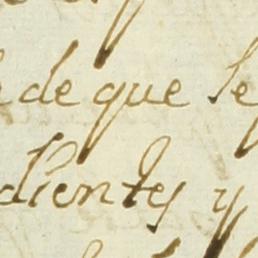 de que se
dientes y